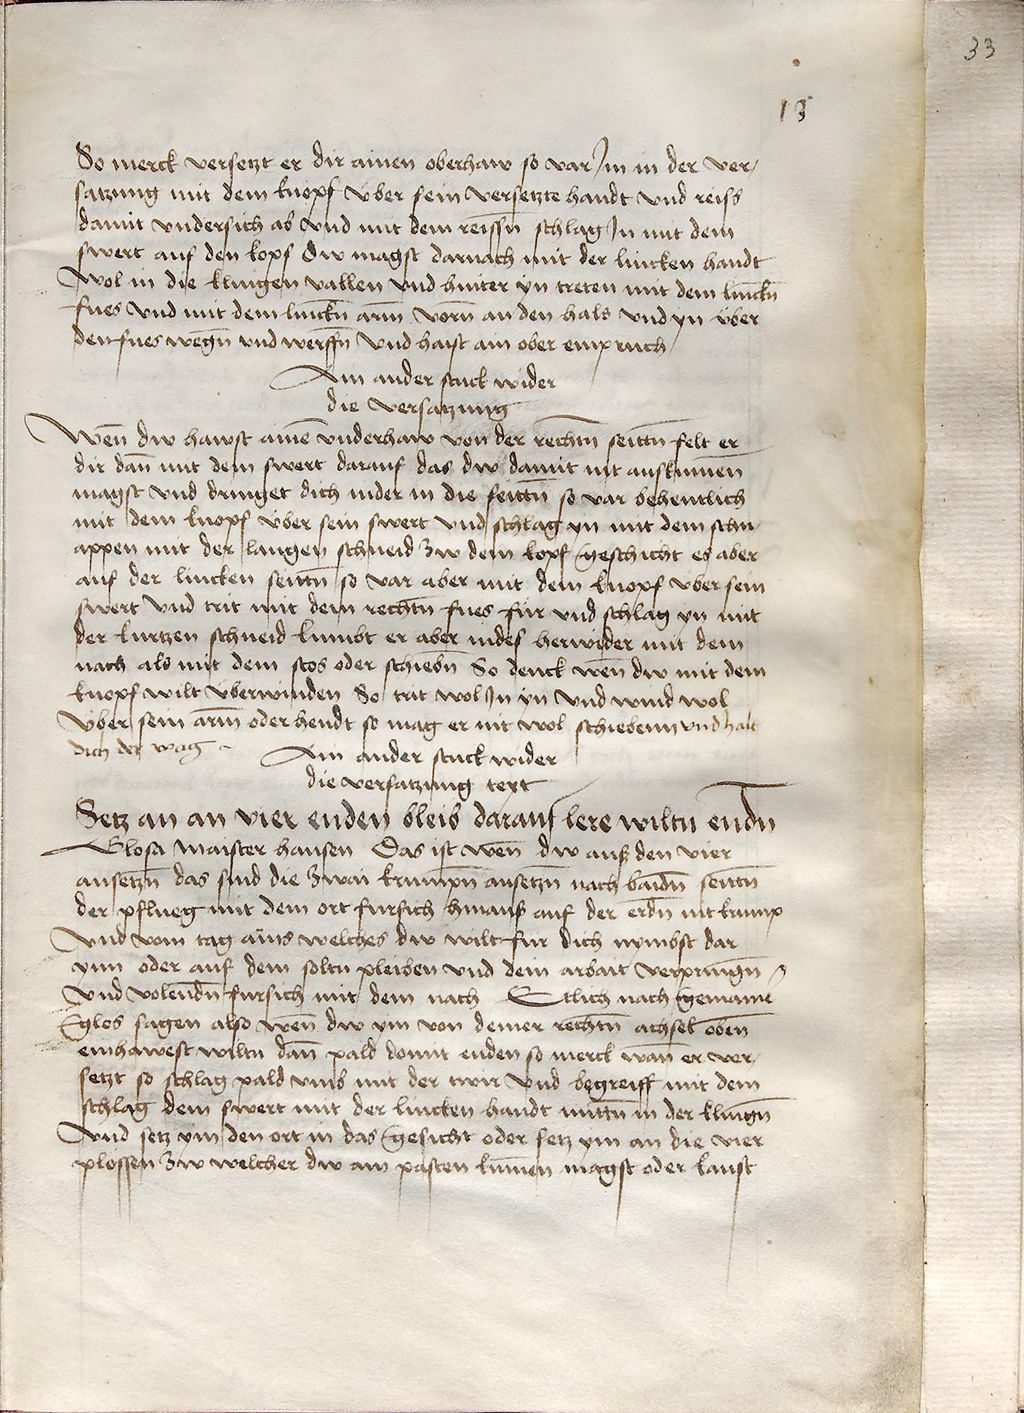 33
18
So merck versetzt er dir ainen oberhaw so var Im in der ver-
satzung mit dem knopf über sein versetzte handt und reiss
damit undersich ab und mit dem reissn̄ schlag In mit dem
swert auf den kopf Dw magst darnach mit der lincken handt
wol in die klingen vallen und hinter yn treten mit dem linckn̄
fues und mit dem linckn̄ arm̄ vorn̄ an den hals und yn über
den fues wegn̄ und werffn̄ und haist ain ober einpruch
Ain ander stuck wider
die versatzung
Wen̄ dw hawst aine͂ underhaw von der rechtn̄ seittn̄ felt er
dir dan̄ mit dem swert darauf das dw damit nit auf kum̄en
magst und dringet dich nider in die seittn̄ so var behentlich
mit dem knopf über sein swert und schlag yn mit dem schn-
appen mit der langen schneid zw dem kopf Geschicht es aber
auf der lincken seittn̄ so var aber mit dem knopf über sein
swert und trit mit dem rechtn̄ fues für und schlag yn mit
der kurtzen schneid kumbt er aber indes herwider mit dem
nach als mit dem stos oder schiebn̄ So denck wen̄ dw mit dem
knopf wilt überwinden So trit wol In yn und wind wol
über sein arm̄ oder hendt so mag er nit wol schiebenn und halt
dich der wag
Ain ander stuck wider
die versatzung text
Setz an an vier enden bleib darauf lere wiltu endn̄
Glosa maister hansen Das ist wen̄ dw auß den vier
ansetzn̄ das sind die zwai krumpn̄ ansetzn̄ nach baidn̄ seittn̄
der pflueg mit dem ort fürsich hinauß auf der erdn̄ nit krump
und vom tag ains welches dw wilt für dich nymbst dar
ynn oder auf dem soltu pleiben und dein arbait verpringn̄
und volendn̄ fürsich mit dem nach Etlich nach gemaine͂
glos sagen also wen̄ dw ym von deiner rechtn̄ achsel oben̄
einhawest wiltu dan̄ pald domit enden so merck wan̄ er ver-
setzt so schlag pald umb mit der twir und begreiff mit dem
schlag dem swert mit der lincken handt mittn̄ in der klingn̄
und setz ym den ort in das gesicht oder setz ym an die vier
plossen zw welcher dw am pasten kum̄en magst oder kanst